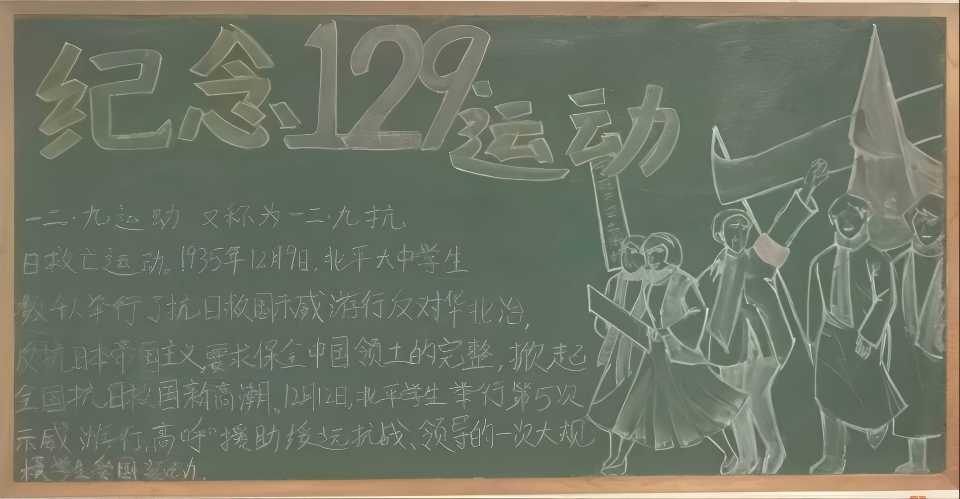 纪念129运动
一二·九运动 又称为一二·九抗
日救亡运动。1935年12月9日,北平大中学生
数千人举行了抗日救国示威游行反对华北治,
反抗日本帝国主义,要求保全中国领土的完整,掀起
全国抗日救国新高潮。12月12日,北平学生举行第5次
示威游行,高呼"援助绥远抗战、领导的一次大规
模学生爱国运动.